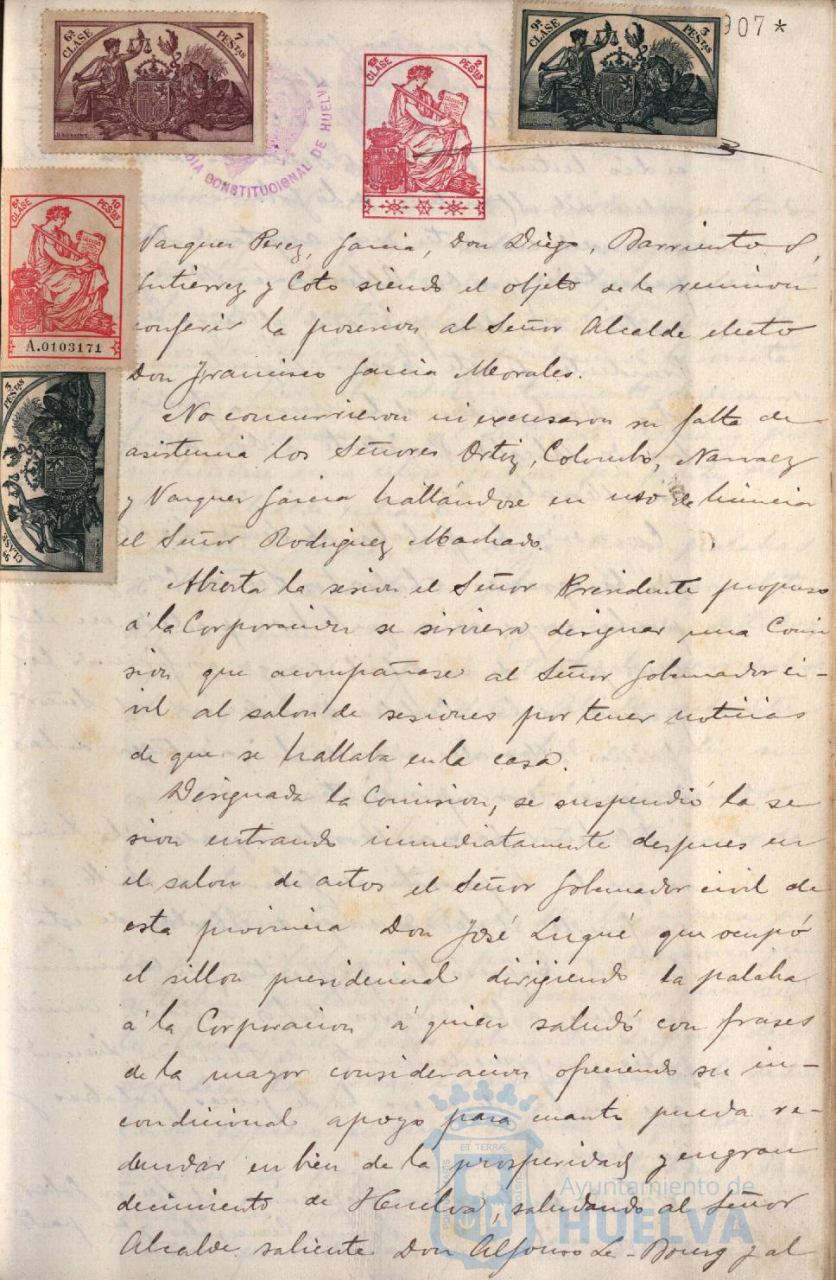 6ª CLASE 7 PESTAS
9ª CLASE 3 PESTAS
907*
CLASE 2 PESTAS
CONSTITUCIONAL DE HUELVA
CLASE 10 PESTAS
A.0103171
9ª CLASE 3 PESTAS
Vazquez Perez, Garcia, Don Diego, Barriento S,
Gutierrez y Coto siendo el objeto de la reunion
conferir la posesion al Señor Alcalde electo
Don Francisco Garcia Morales.
No concurrieron ni excusaron su falta de
asistencia los Señores Ortiz, Colombo, Narvaez
y Vazquez Garcia hallándose en uso de licencia
el Señor Rodriguez Machado.
Abierta la sesion el Señor Presidente propuso
á la Corporacion se sirviera designar una Comi
sion que acompañase al Señor Gobernador ci-
vil al salon de sesiones por tener noticias
de que se hallaba en la casa.
Designada la Comision, se suspendió la se
sion entrando inmediatamente despues en
el salon de actos el Señor Gobernador civil de
esta provincia Don José Luqué que ocupó
el sillon presidencial dirigiendo la palaba
á la Corporacion á quien saludó con frases
de la mayor consideracion ofreciendo su in-
condicional apoyo para cuanto pueda re-
dundar en bien de la prosperidad y engran
decimiento de Huelva, saludando al Señor
Alcalde saliente Don Alfonso Le-Bourg y al
ET TERRÆ
Ayuntamiento de
HUELVA